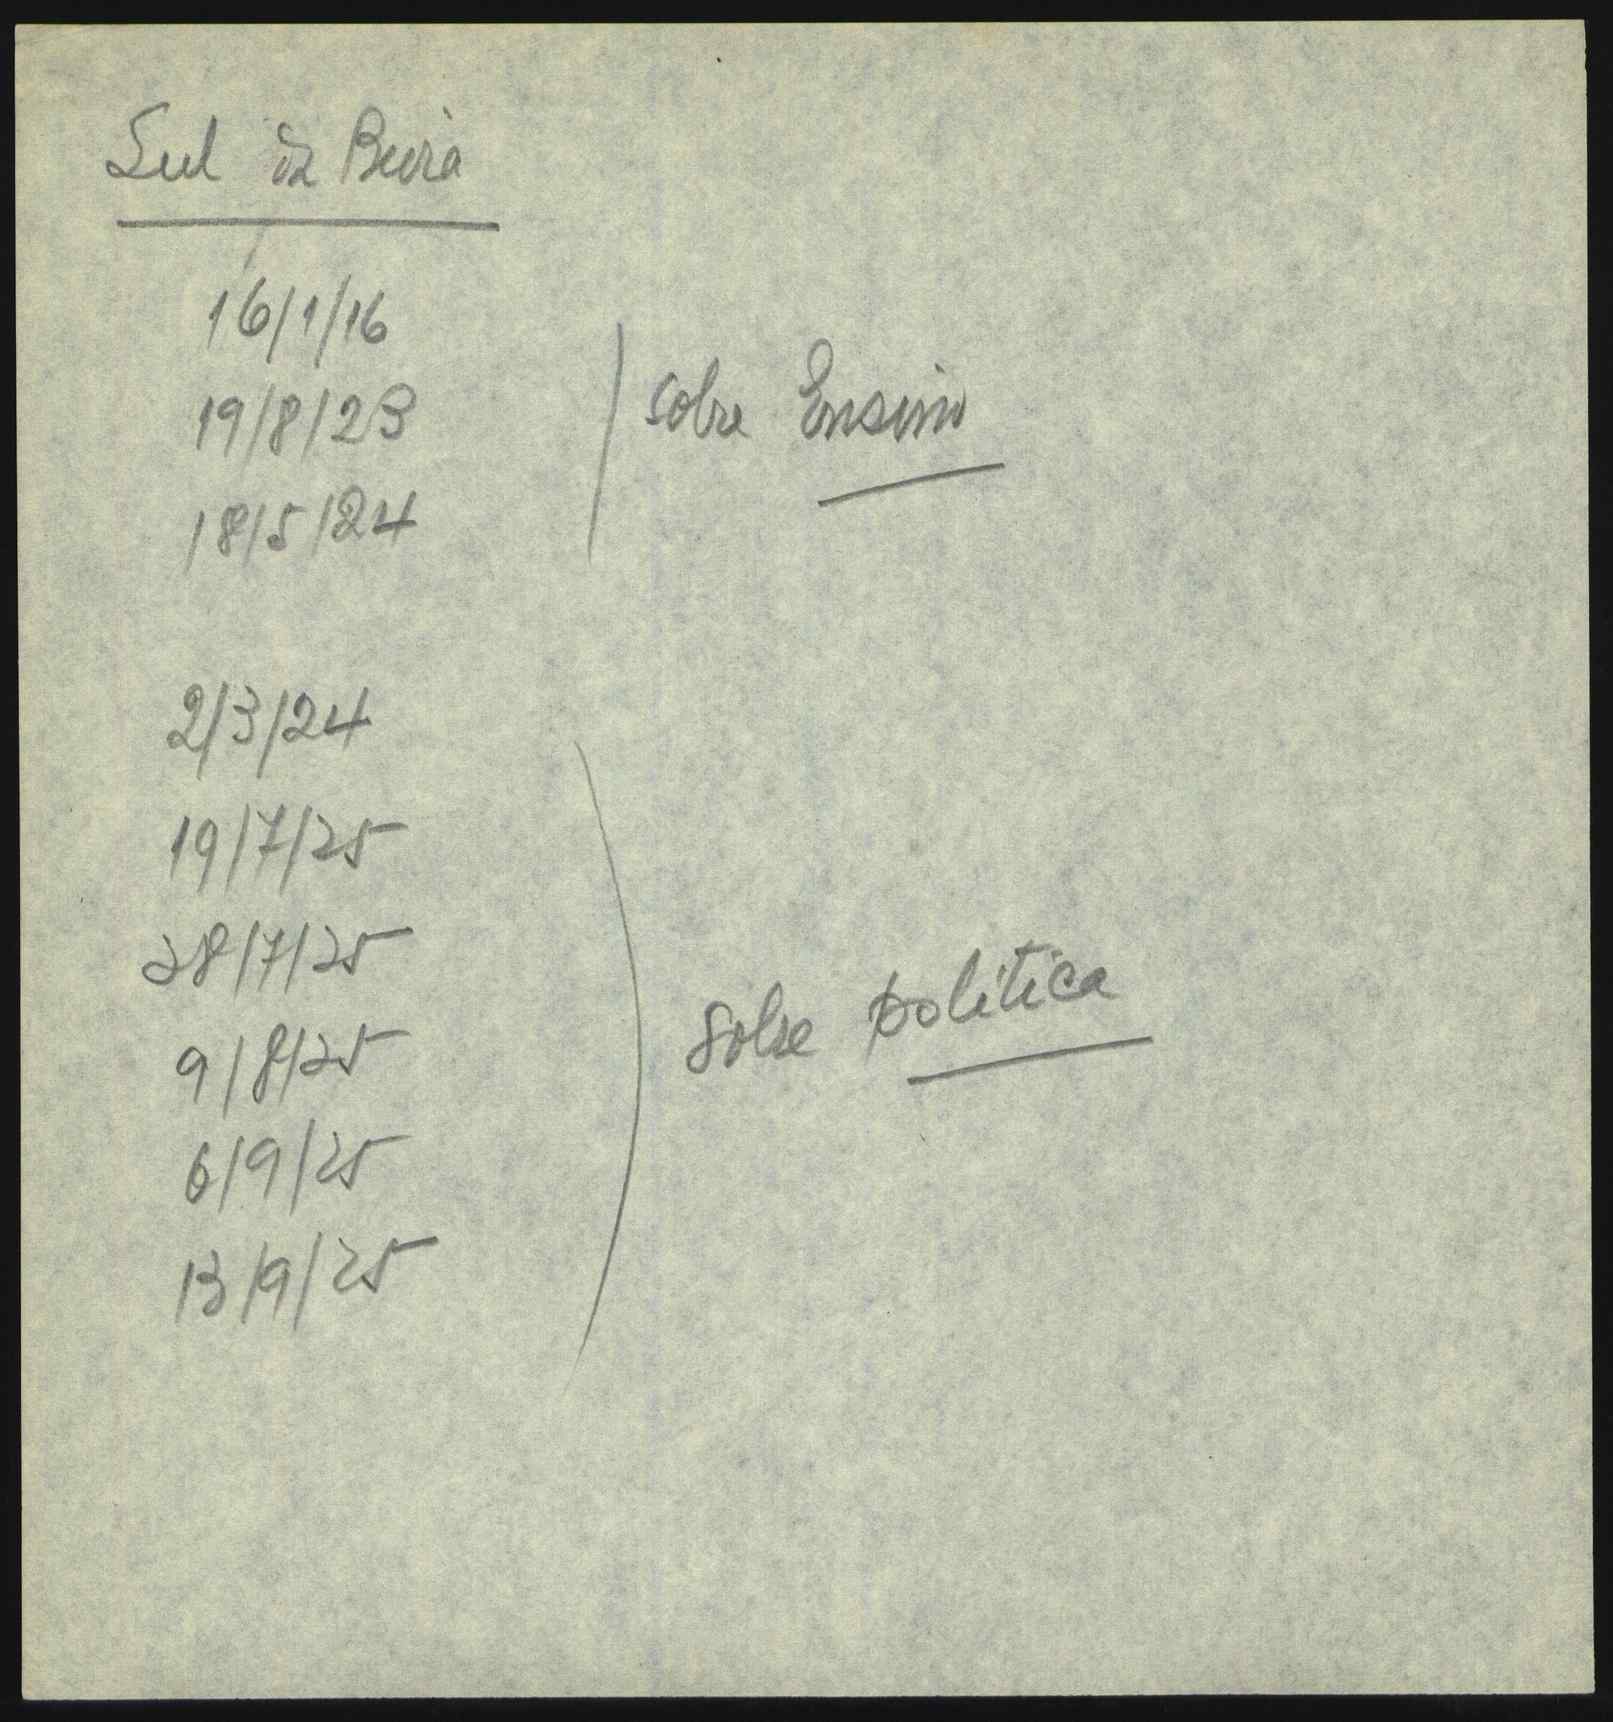 Sul da Beira
16/1/16
19/8/23
sobre Ensino
18/5/24
2/3/24
19/7/25
28/7/25
sobre política
9/8/25
6/9/25
13/9/25